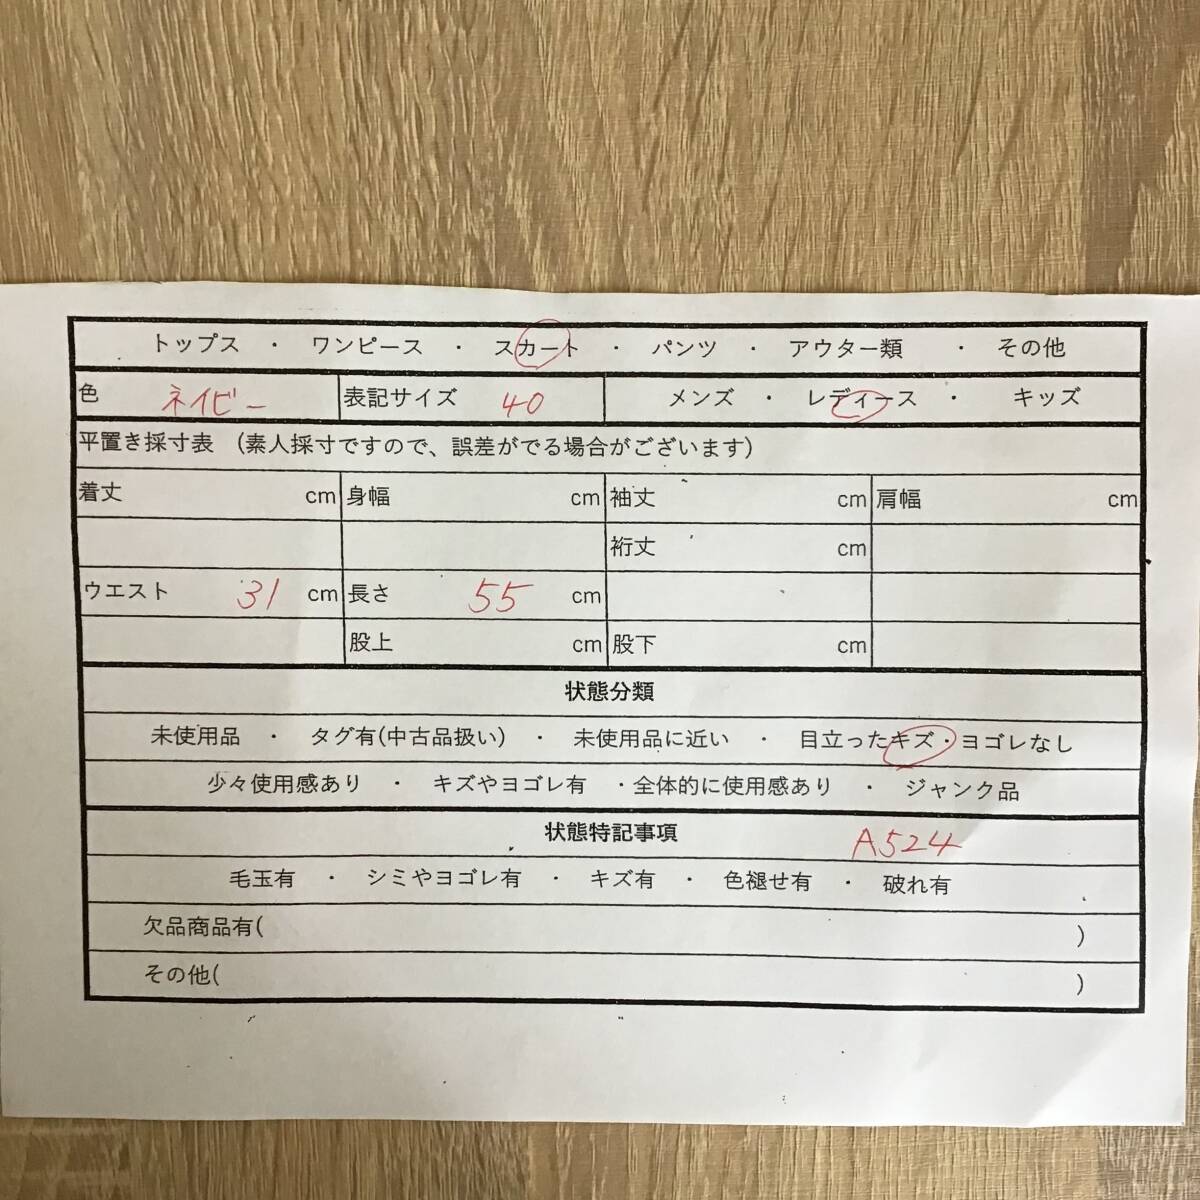 トップス ・ ワンピース ・ スカート ・ パンツ ・ アウター類 ・ その他
色 ネイビー 表記サイズ 40 メンズ ・ レディース ・ キッズ
平置き採寸表 (素人採寸ですので、誤差がでる場合がございます)
着丈 cm 身幅 cm 袖丈 cm 肩幅 cm
裄丈 cm
ウエスト 31 cm 長さ 55 cm
股上 cm 股下 cm
状態分類
未使用品 ・ タグ有(中古品扱い) ・ 未使用品に近い ・ 目立ったキズ・ヨゴレなし
少々使用感あり ・ キズやヨゴレ有 ・全体的に使用感あり ・ ジャンク品
状態特記事項 A524
毛玉有 ・ シミやヨゴレ有 ・ キズ有 ・ 色褪せ有 ・ 破れ有
欠品商品有( )
その他( )